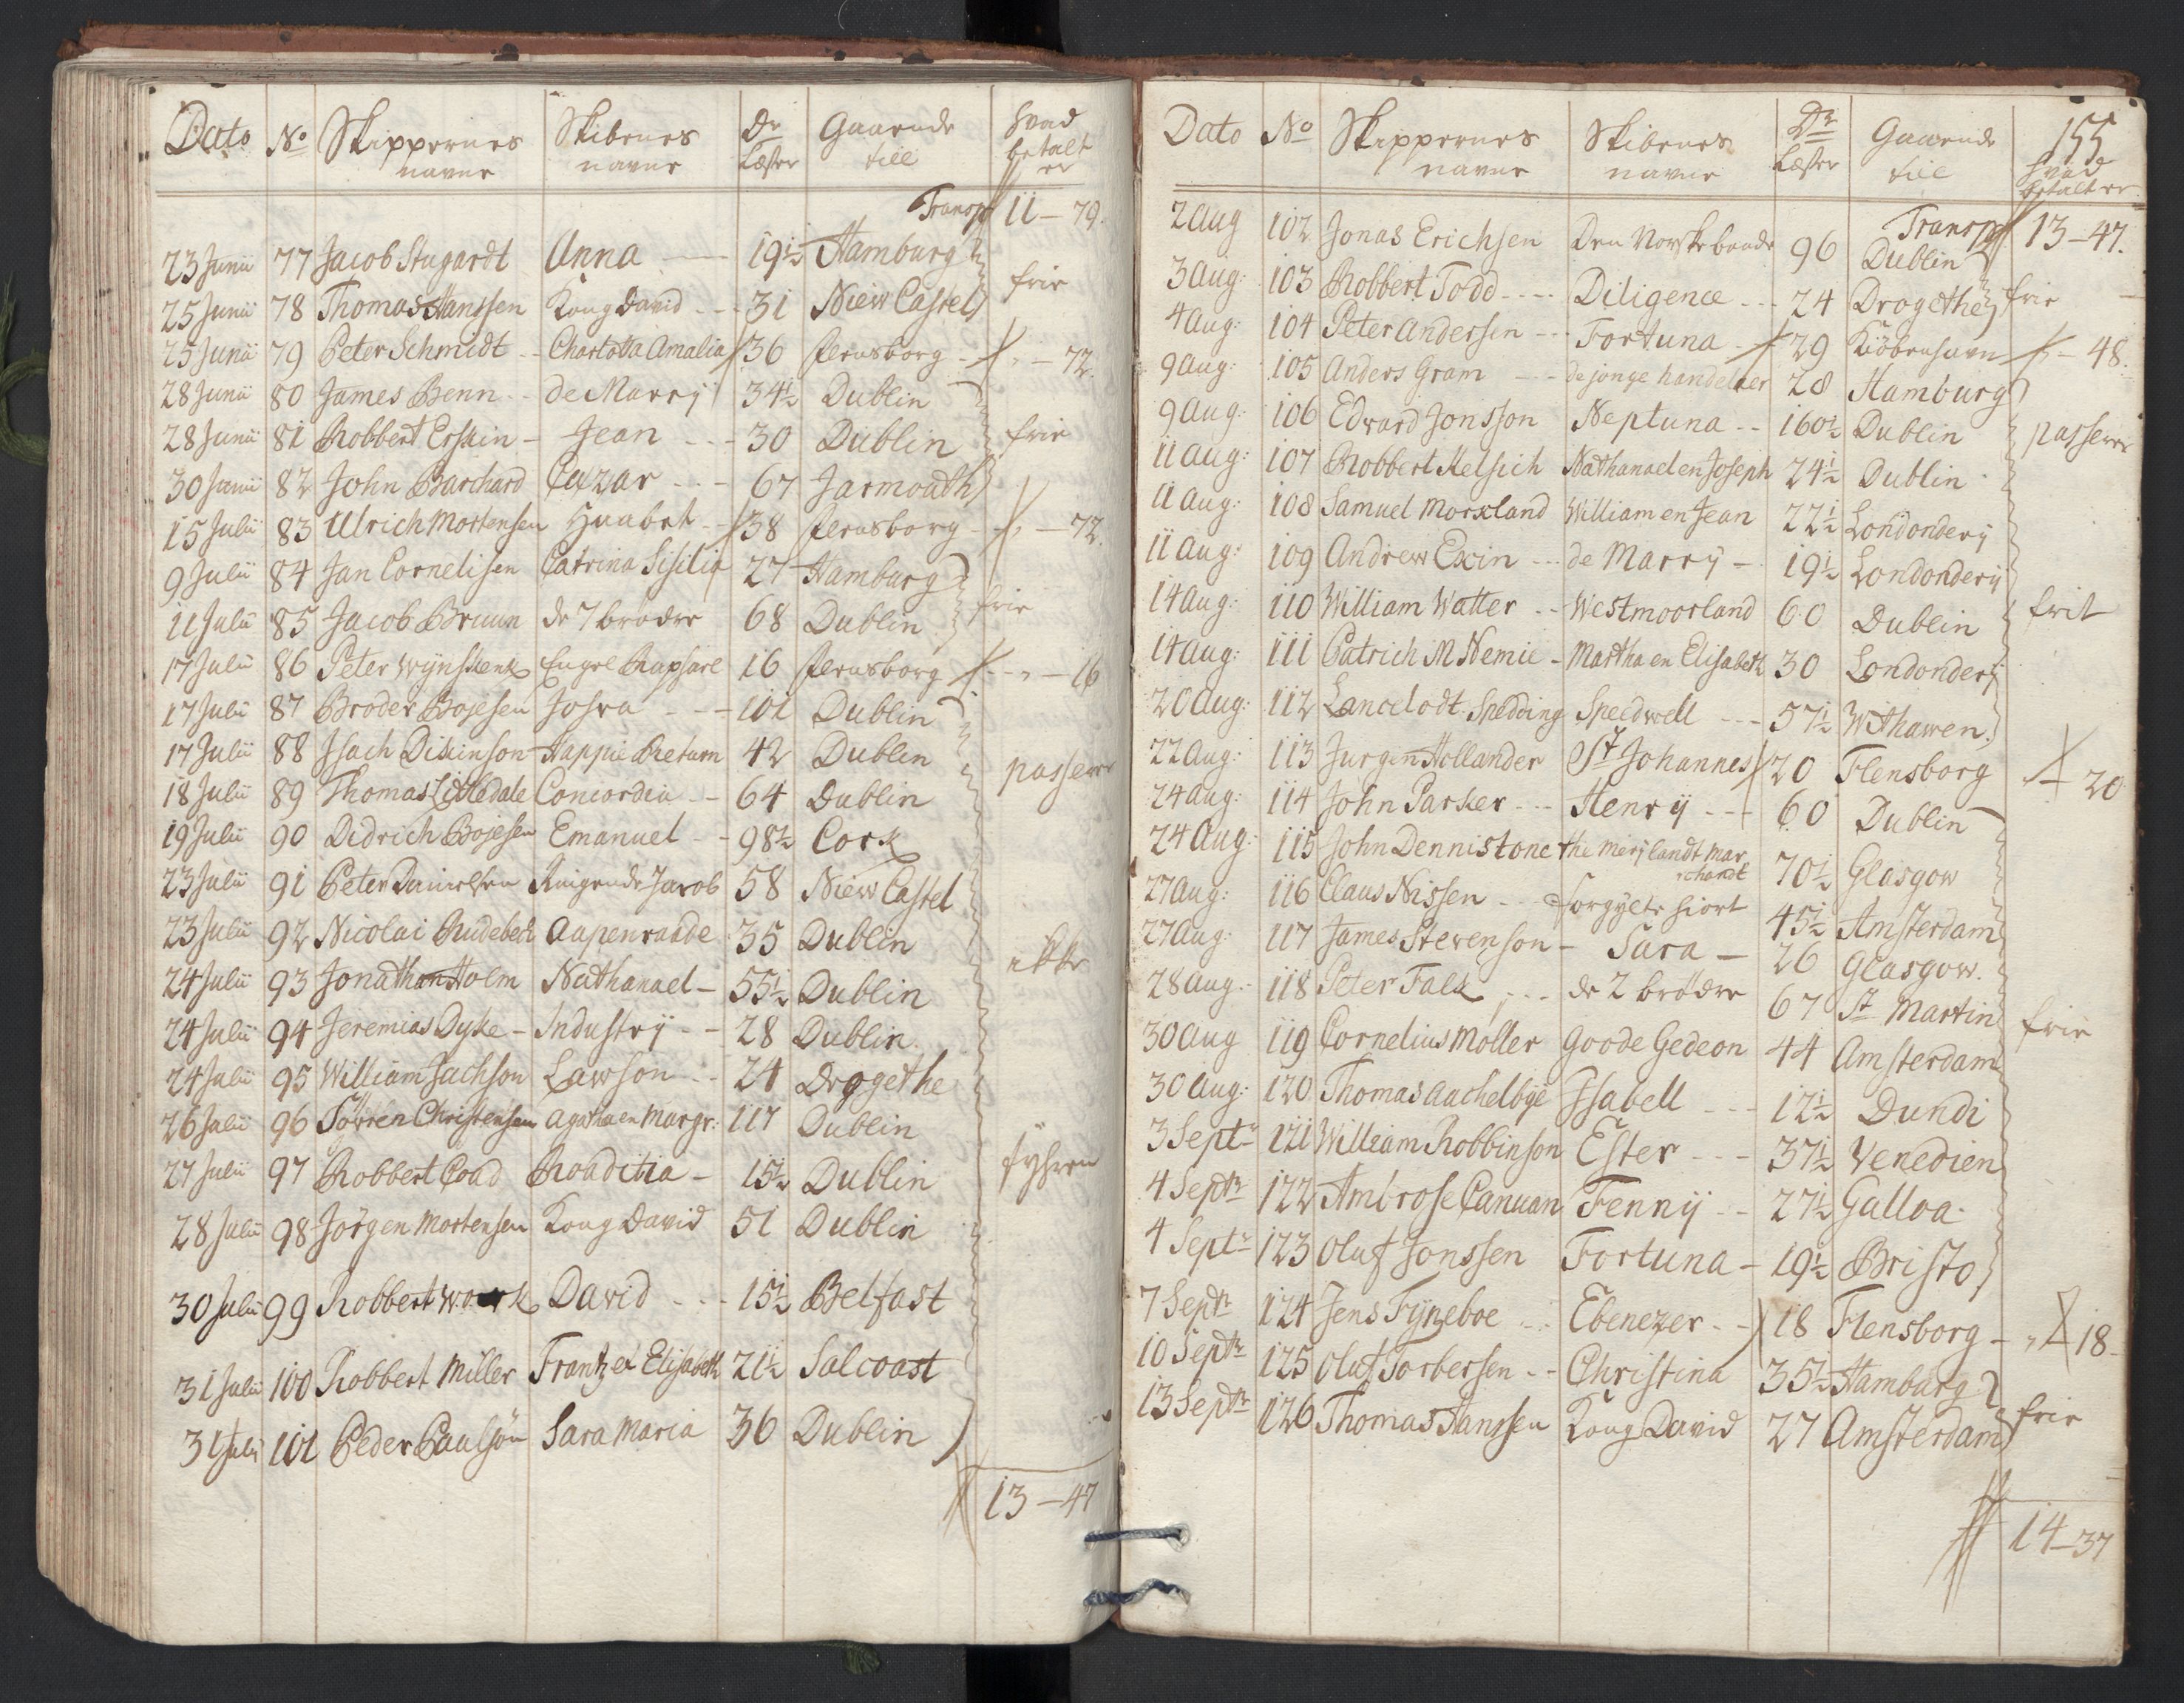 Dato No Skippernes navne Skibenes navne Dr Læster Gaaende till hvad betalt er
Transpt 11 - 79.
23 Junii 77 Jacob Stugardt Anna 19½ Hamburg
25 Junii 78 Thomas Hanssen Kong David 31 Niew Castel frie
25 Junii 79 Peter Schmidt Charlotta Amalia 36 flensborg - 72.
28 Junii 80 James Benn de Marrÿ 34½ Dublin
28 Junii 81 Robbert Erskin Jean 30 Dublin frie
30 Junii 82 John Barchard Cæzar 67 Jarmouth
15 Julii 83 Ulrich Mortensen Haabet 38 flensborg - 72.
9 Julii 84 Jan Cornelisen Catrina Sisilia 27 Hamburg
11 Julii 85 Jacob Bruun de 7 brødre 68 Dublin frie
17 Julii 86 Peter Wÿnskenk Engel Raphael 16 flensborg - 16
17 Julii 87 Broder Bojesen Josva 101 Dublin
17 Julii 88 Isach Dikinson Happie Return 42 Dublin passerer
18 Julii 89 Thomas Litledale Concordia 64 Dublin
19 Julii 90 Didrich Bojesen Emanuel 98½ Cork
23 Julii 91 Peter Danielsen Ringende Jacob 58 Niew Castel
23 Julii 92 Nicolai Rudebeck Aapenraade 35 Dublin ikke
24 Julii 93 Jonathan Holm Nathanael 55½ Dublin
24 Julii 94 Jeremias Dyke Industrÿ 28 Dublin.
24 Julii 95 William Jachson Lawson 24 Drogethe
26 Julii 96 Sørren Christensen Agatha en Margr: 117 Dublin
27 Julii 97 Robbert Coad Roaditia 15½ Dublin fÿhren
28 Julii 98 Jørgen Mortensen Kong David 51 Dublin
30 Julii 99 Robbert Work David 15½ Belfast
31 Julii 100 Robbert Miller Frantz et Elisabeth 21½ Salcoast
31 Julii 101 Peder Paulsøn Sara Maria 36 Dublin
13 - 47
155
Dato No Skippernes navne Skibenes navne Dr Læster Gaaende till hvad betalt er
Transpt 13 - 47.
2 Aug 102 Jonas Erichsen Den Norske bonde 96 Dublin
3 Aug: 103 Robbert Todd Diligence 24 Drogethe frie
4 Aug: 104 Peter Andersen Fortuna 29 Kiöbenhavn - 48.
9 Aug: 105 Anders Gram de jonge handelaer 28 Hamburg
9 Aug: 106 Edvard Jonsson Neptuna 160½ Dublin passerer
11 Aug: 107 Robbert Kelsich Nathanael en Joseph 24½ Dublin
11 Aug: 108 Samuel Morxland William en Jean 22½ Londonderÿ
11 Aug: 109 Andrew Exin de Marrÿ 19½ Londonderÿ
14 Aug: 110 William Watter Westmoorland 60 Dublin frit
14 Aug: 111 Patrich M Nemie Martha en Elisabeth 30 Londonderÿ
20 Aug: 112 Lancelodt Spedding Speedwell 57½ Withawen.
22 Aug: 113 Jurgen Hollander St Johannes 20 Flensborg - 20
24 Aug: 114 John Parker Henrÿ 60 Dublin
24 Aug: 115 John Dennistone the merÿlandt marchandt 70½ Glasgow
27 Aug: 116 Claus Nissen forgÿlte hiort 45½ Amsterdam
27 Aug: 117 James Stevenson Sara 26 Glasgow.
28 Aug: 118 Peter Falk de 2 brødre 67 St Martin
30 Aug 119 Cornelius Moller Goode Gedeon 44 Amsterdam frie
30 Aug: 120 Thomas Aachelbÿe Isabell 12½ Dundi
3 Septr 121 William Robbinson Ester 37½ Venedien
4 Septr 122 Ambrose Canuan Fennÿ 27½ Galloa
4 Septr 123 Oluf Jonssen Fortuna 19½ Bristo
7 Septr 124 Jens Fÿneboe Ebenezer 18 Flensborg - 18
10 Septr 125 Oluf Torbersen Christina 35½ Hamburg
13 Septr 126 Thomas Hanssen Kong David 27 Amsterdam frie
14 - 37